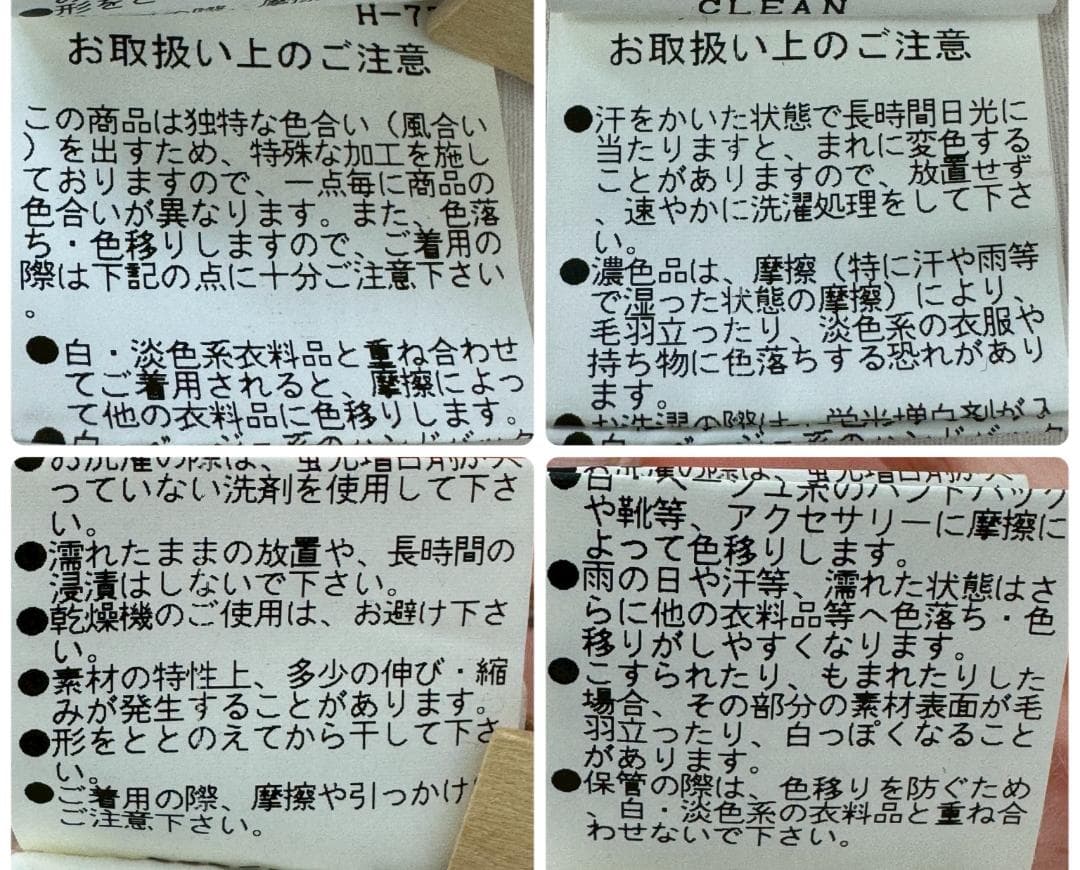 ●形を
H-7
お取扱い上のご注意
この商品は独特な色合い（風合い
）を出すため、特殊な加工を施し
ておりますので、一点毎に商品の
色合いが異なります。また、色落
ち・色移りしますので、ご着用の
際は下記の点に十分ご注意下さい
。
●白・淡色系衣料品と重ね合わせ
てご着用されると、摩擦によっ
て他の衣料品に色移りします。
CLEAN
お取扱い上のご注意
●汗をかいた状態で長時間日光に
当たりますと、まれに変色する
ことがありますので、放置せず
、速やかに洗濯処理をして下さ
い。
●濃色品は、摩擦（特に汗や雨等
で湿った状態の摩擦）により、
毛羽立ったり、淡色系の衣服や
持ち物に色落ちする恐れがあり
ます。
●お洗濯の際は、蛍光増白剤が入
●お洗濯の際は、蛍光増白剤が入
っていない洗剤を使用して下さ
い。
●濡れたままの放置や、長時間の
浸漬はしないで下さい。
●乾燥機のご使用は、お避け下さ
い。
●素材の特性上、多少の伸び・縮
みが発生することがあります。
●形をととのえてから干して下さ
い。
●ご着用の際、摩擦や引っかけ
ご注意下さい。
ジュ系のハンドバック
や靴等、アクセサリーに摩擦に
よって色移りします。
●雨の日や汗等、濡れた状態はさ
らに他の衣料品等へ色落ち・色
移りがしやすくなります。
●こすられたり、もまれたりした
場合、その部分の素材表面が毛
羽立ったり、白っぽくなること
があります。
●保管の際は、色移りを防ぐため
、白・淡色系の衣料品と重ね合
わせないで下さい。